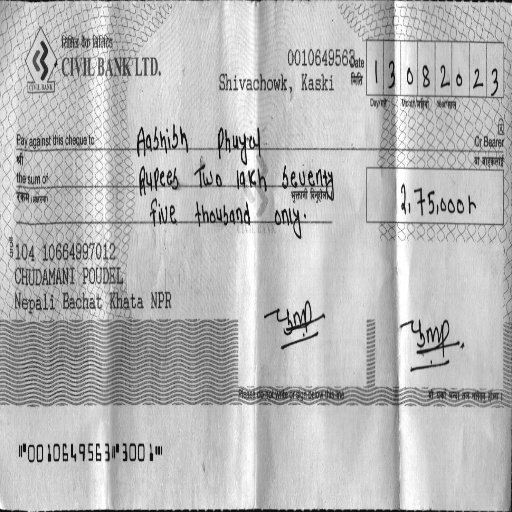 सिभिल बैंक लिमिटेड
CIVIL BANK LTD.
CIVIL BANK
0010649563
Shivachowk, Kaski
Date
मिति
1 3 0 8 2 0 2 3
Day/गते Month/महिना Year/साल
Pay against this cheque to Aashish Phuyal Or Bearer
श्री वा वाहकलाई
the sum of Rupees Two lakh seventy
रकम (अक्षरमा) भुक्तानी दिनुहोस्
five thousand only.
2,75,000/-
104 10664997012
CHUDAMANI POUDEL
Nepali Bachat Khata NPR
Please do not write or sign below this line
⑈0010649563⑈3001⑈